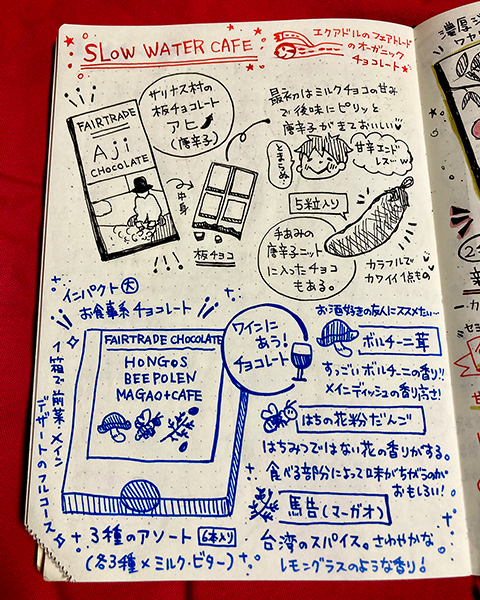 SLOW WATER CAFE
エクアドルのフェアトレード
のオーガニック
チョコレート
サリナス村の
板チョコレート
アヒ
(唐辛子)
FAIRTRADE
Aji
CHOCOLATE
中身
板チョコ
最初はミルクチョコの甘み
で後味にピリッと
唐辛子がきておいしい
とまらぬ…
甘辛エンド
レスw
5粒入り
手あみの
唐辛子ニット
に入ったチョコ
もある。
カラフルで
カワイイ1点もの
インパクト大
お食事系チョコレート
FAIRTRADE CHOCOLATE
HONGOS
BEEPOLEN
MAGAO+CAFE
1箱で前菜・メイン
デザートのフルコース
3種のアソート 6本入り
(各3種×ミルク・ビター)
ワインに
あう!
チョコレート
お酒好きの友人にススメたい〜
ポルチーニ茸
すっごいポルチーニの香り!!
メインディッシュの香り高さ!
はちの花粉だんご
はちみつではない花の香りがする。
食べる部分によって味がちがうのが
おもしろい!
馬告(マーガオ)
台湾のスパイス。さわやかな
レモングラスのような香り!
濃厚